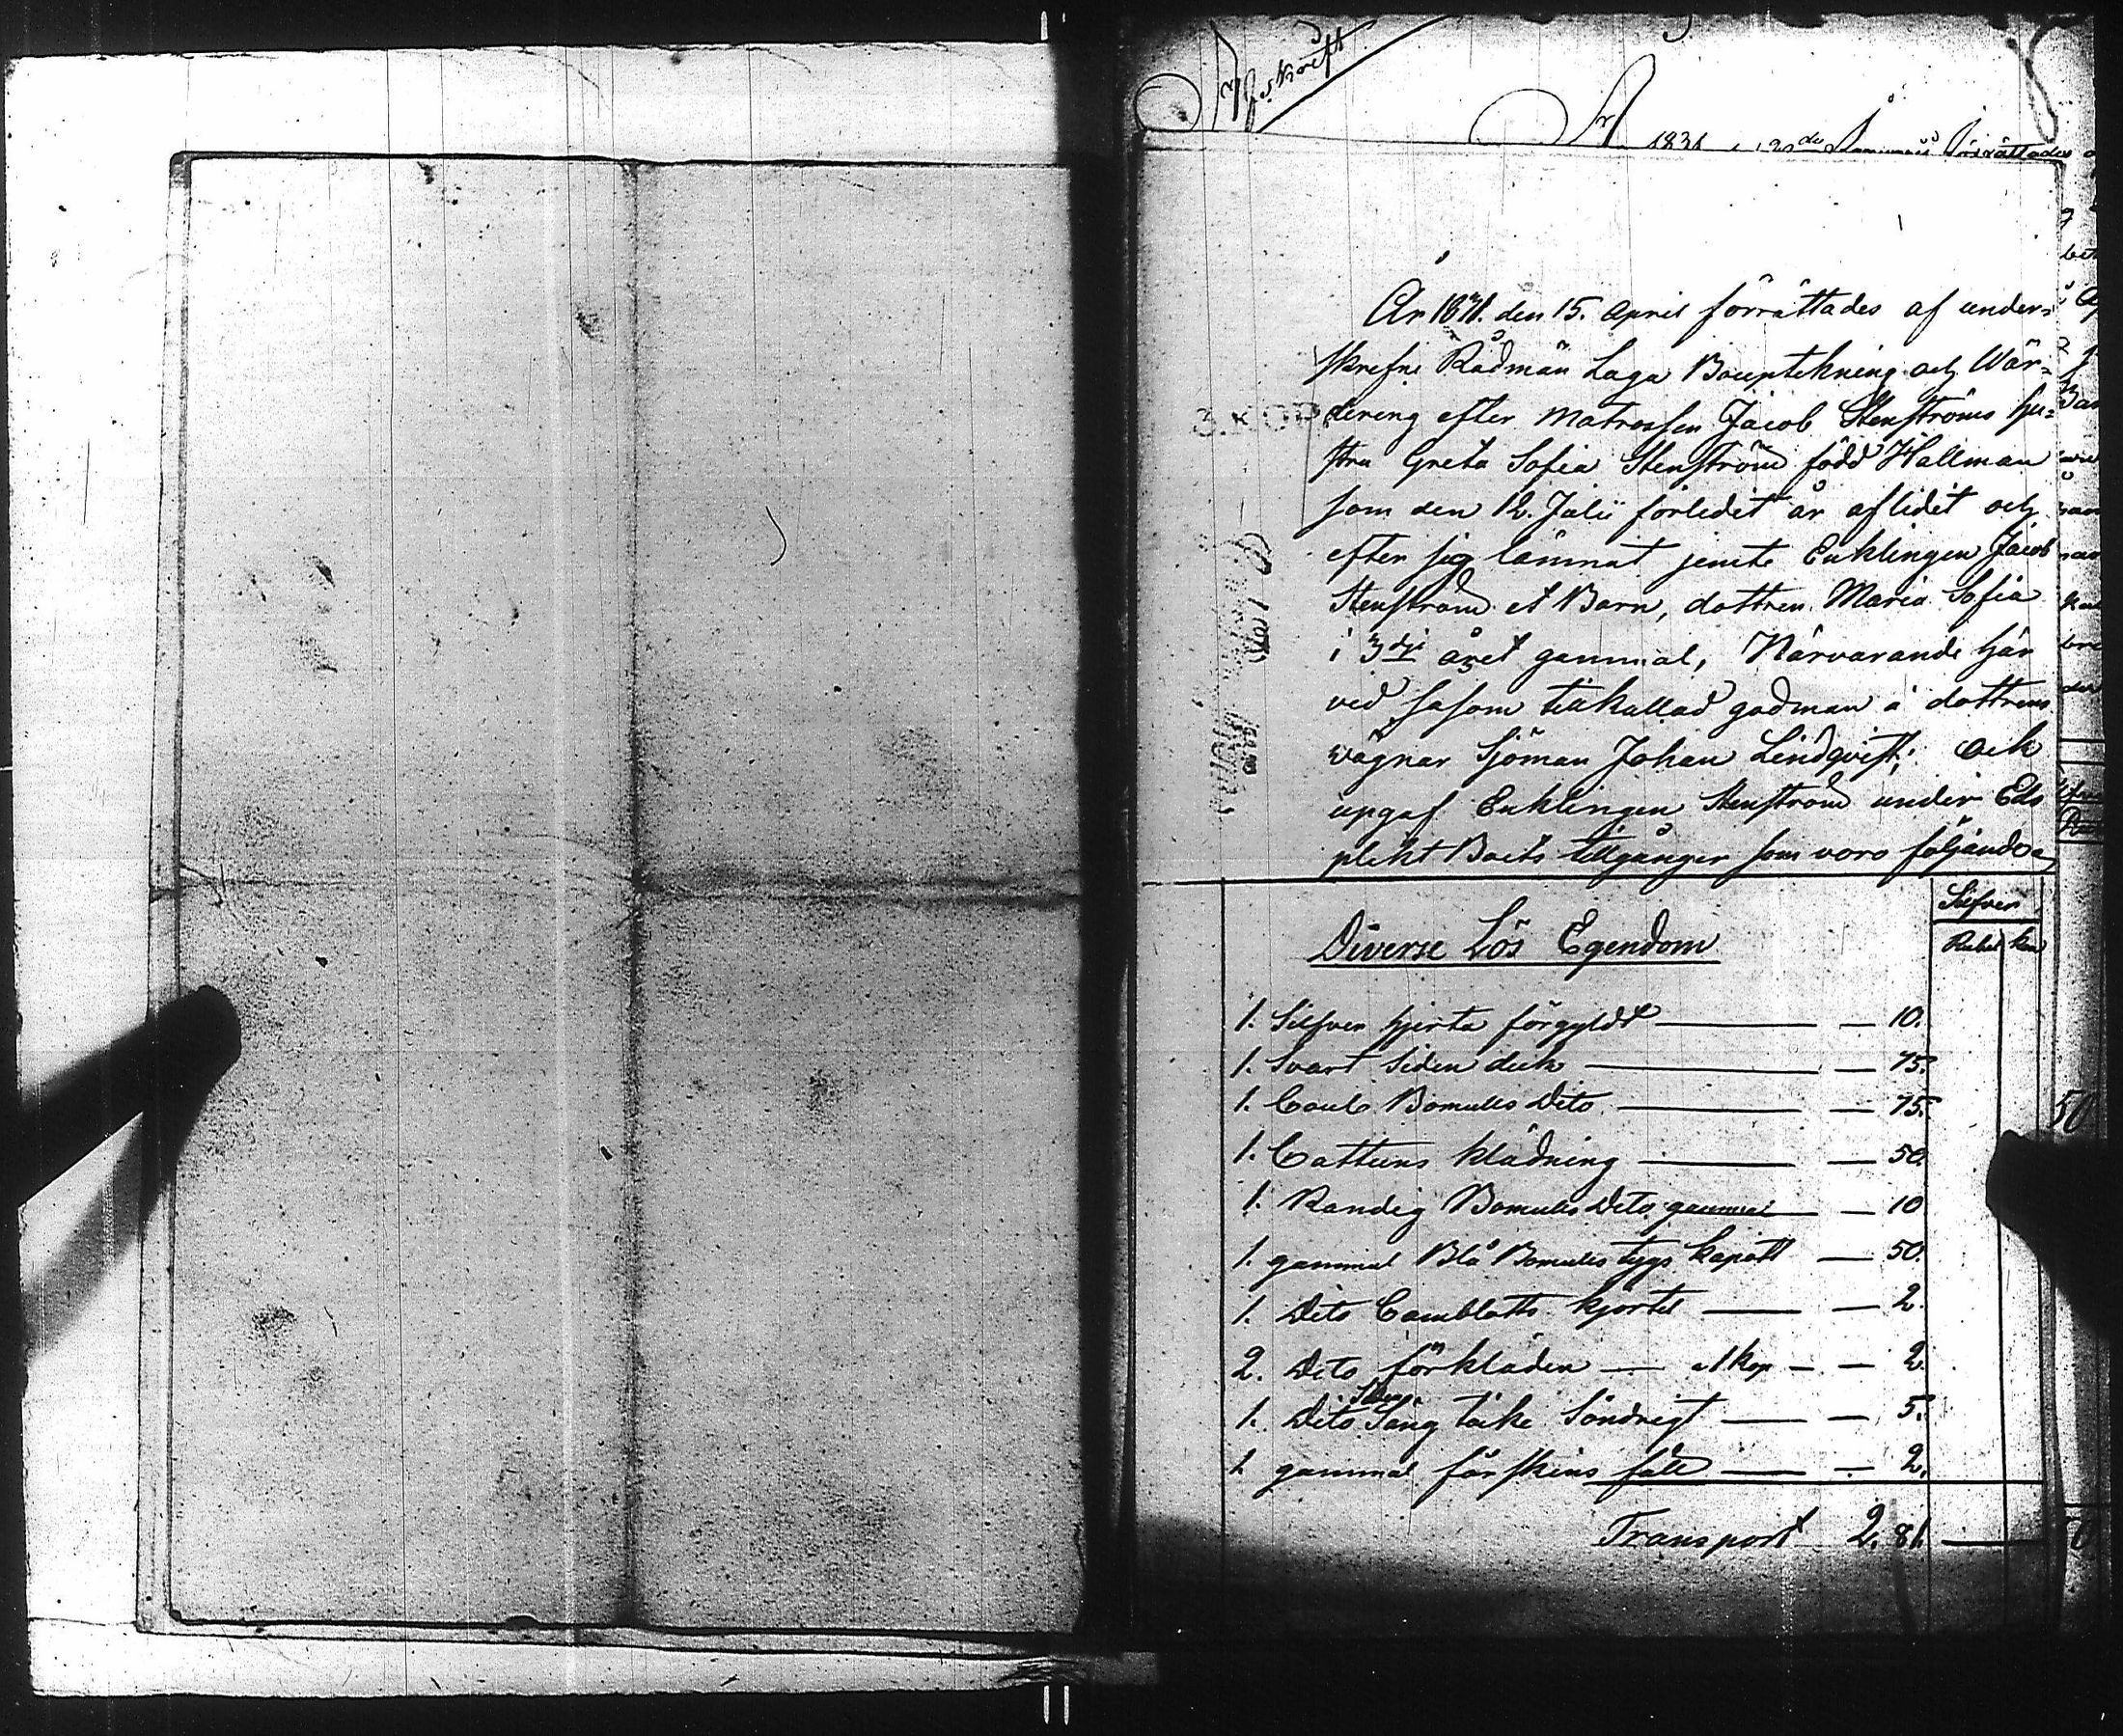 Afskrift
År
1831 den 20de Januarii förrättades
År 1871. den 15. April förrättades af under=
skrefne Rådmän Laga Bouptekning och Wär=
dering efter Matrossen Jacob Stenströms hu=
stru Greta Sofia Stenström född Hallman
som den 12. Julii förledit år aflidit och
efter sig lämnat jemte Enklingen Jacob
Stenström et Barn, dottren Maria Sofia
i 3dje året gammal, Närvarande här
vid såsom tilkallad godman å dottrens
vägnar Sjöman Johan Lindqvist; och
upgaf Enklingen Stenström under Eds
plikt Boets tillgånger som voro följande
Silfver
Rubel kop
Diverse Lös Egendom
1. Silfver hjerta förgyldt — 10.
1. Svart Siden duk — 75.
1. Coul. Bomulls Dito — 75.
1. Cattuns klädning — 50.
1. Randig Bomulls Dito gammal — 10
1. gammal Blå Bomulls tygs kapott — 50.
1. Dito Camblotts kjortel — 2.
2. Dito förkläden — a 1 kop — 2.
1. Dito Säng täcke Söndrigt — 5.
1. gammal fårskins fäll — 2.
Transport 2. 81. —
3. KOP
50